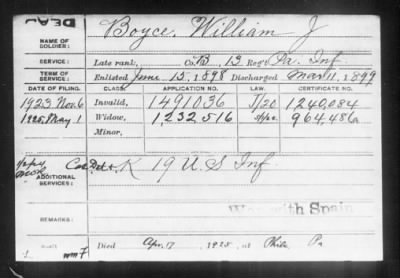 DEAD
NAME OF SOLDIER: Boyce, William J
SERVICE: Late rank, Co. B, 13 Reg't Pa. Inf.
TERM OF SERVICE: Enlisted June 15, 1898 Discharged Mar. 11, 1899
DATE OF FILING. CLASS. APPLICATION NO. LAW. CERTIFICATE NO.
1923 Nov. 6 Invalid, 1491036 J/20 1240,084
1925, May 1 Widow, 1,232,516 964,486
Minor,
ADDITIONAL SERVICES: K 19 U S Inf
War with Spain
REMARKS:
Died Apr. 17, 1925, at Phila Pa